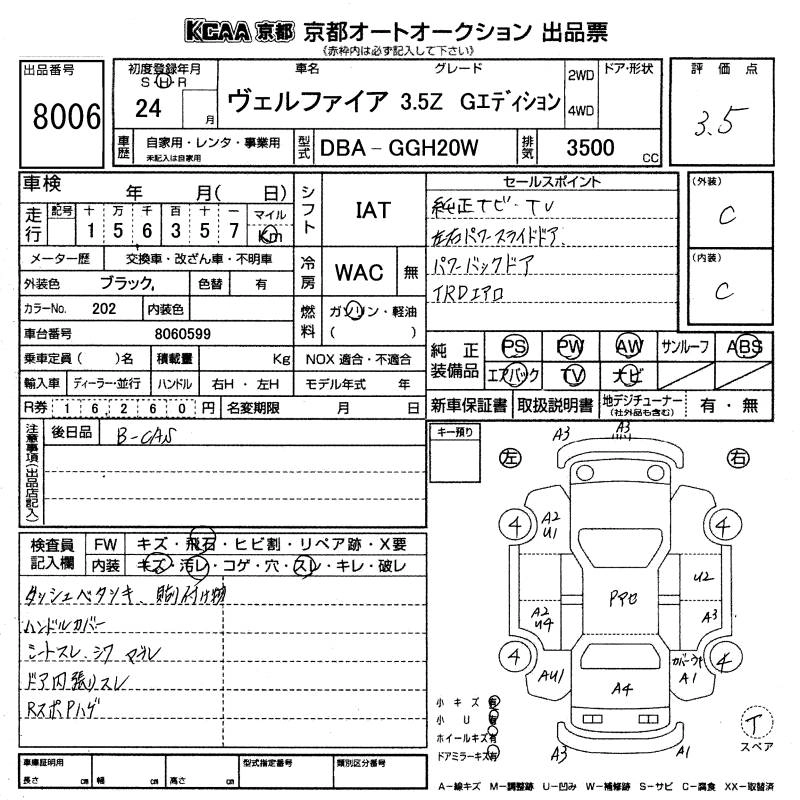 KCAA 京都 京都オートオークション 出品票
《赤枠内は必ず記入して下さい》
出品番号
8006
初度登録年月
S・H・R
24 月
車名 グレード
ヴェルファイア 3.5Z Gエディション
2WD
4WD
ドア・形状
評価点
3.5
車歴
自家用・レンタ・事業用
未記入は自家用
型式 DBA-GGH20W
排気 3500 CC
車検 年 月( 日)
走行 記号 十 万 千 百 十 一
1 5 6 3 5 7
マイル
Km
メーター歴 交換車・改ざん車・不明車
外装色 ブラック, 色替 有
カラーNo. 202 内装色
車台番号 8060599
乗車定員( )名 積載量 Kg
輸入車 ディーラー・並行 ハンドル 右H・左H
R券 16,260円 名変期限 月 日
シフト IAT
冷房 WAC 無
燃料 ガソリン・軽油
( )
NOX 適合・不適合
モデル年式 年
セールスポイント
純正ナビ・TV
左右パワースライドドア.
パワーバックドア
TRDエアロ
(外装)
C
(内装)
C
純正装備品 PS PW AW サンルーフ ABS
エアバック TV ナビ
新車保証書 取扱説明書 地デジチューナー
(社外品も含む) 有・無
注意事項(出品店記入)
後日品 B-CAS
キー預り
検査員記入欄
FW キズ・飛石・ヒビ割・リペア跡・X要
内装 キズ・汚レ・コゲ・穴・スレ・キレ・破レ
ダッシュベタツキ、貼り付け物
ハンドルカバー
シートスレ、シワ
ドア内張りスレ
RスポPハゲ
左 右
A3 A3
4 4
A2
U1
U2
A2
U4
Pアロ
A3
4 4
AU1
A4
A1
A3 A1
小キズ有
小U有
ホイールキズ有
ドアミラーキズ有
T
スペア
車庫証明用
長さ cm 幅 cm 高さ cm
型式指定番号
類別区分番号
A-線キズ M-調整跡 U-凹み W-補修跡 S-サビ C-腐食 XX-取替済